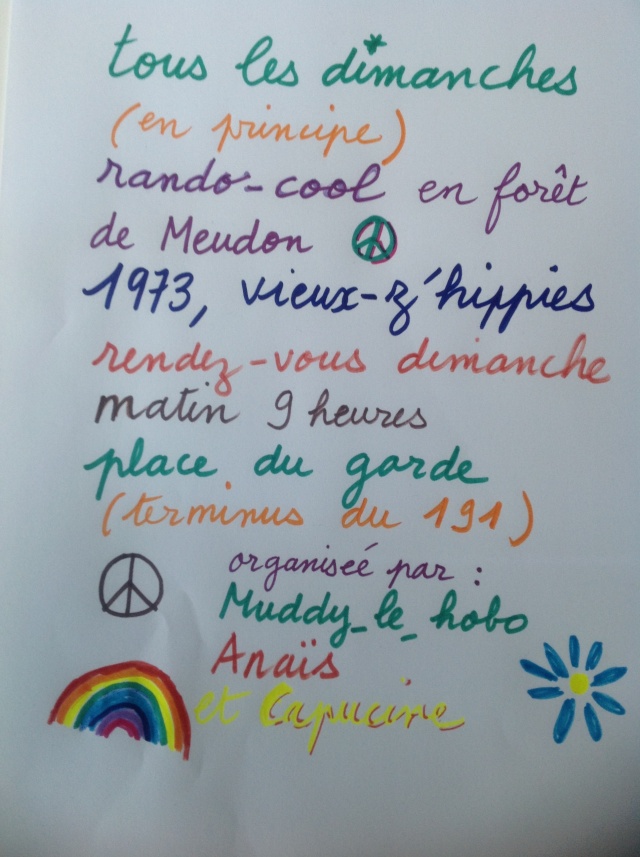 tous les dimanches
(en principe)
rando-cool en forêt
de Meudon
1973, vieux-z'hippies
rendez-vous dimanche
matin 9 heures
place du garde
(terminus du 191)
organiseé par :
Muddy_le_hobo
Anaïs
et Capucine